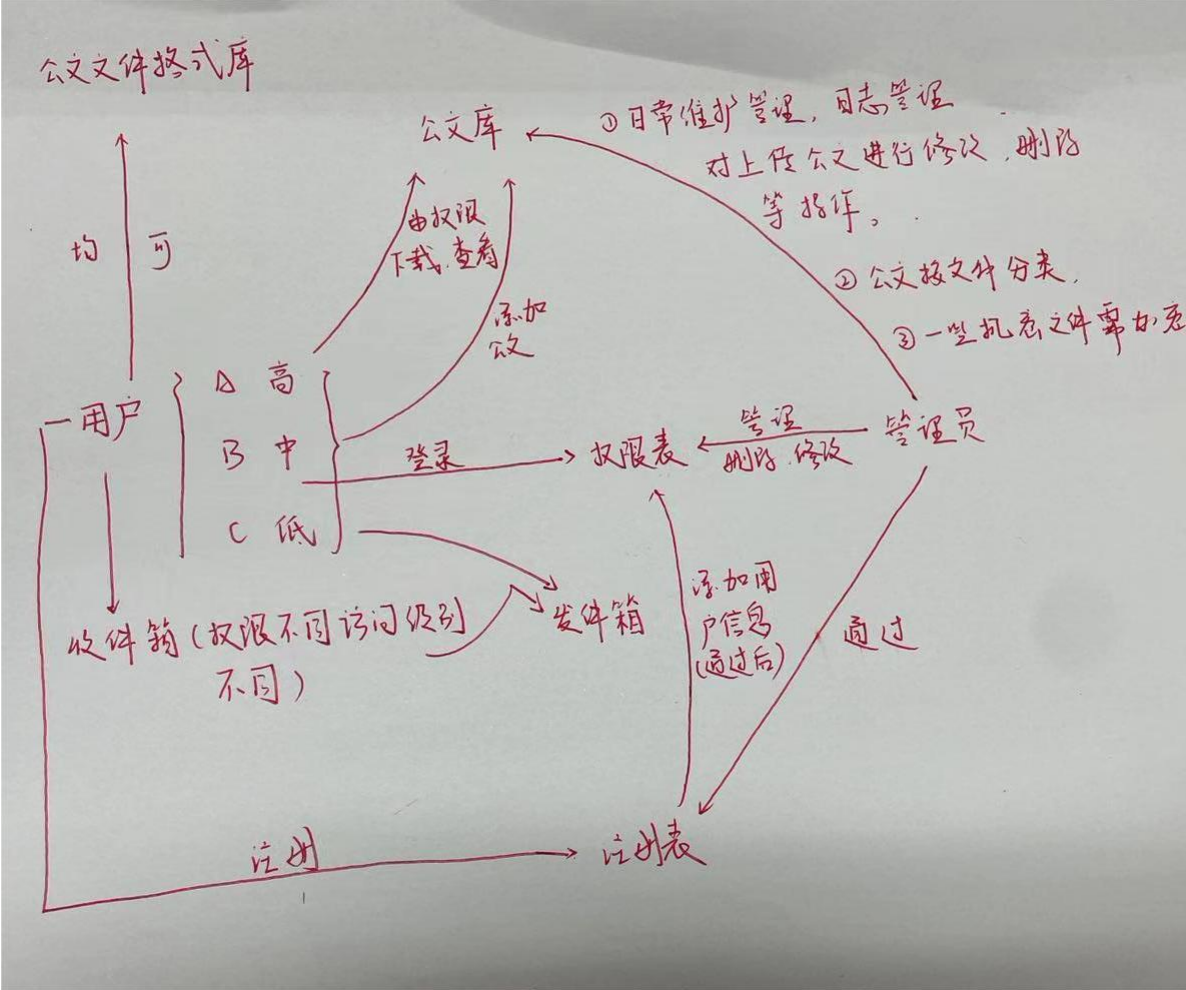 公文文件格式库
公文库
①日常维护管理，日志管理
对上传公文进行修改、删除
等操作。
②公文按文件分类，
③一些机密文件需加密
均 可
由权限
下载、查看
添加
公文
一用户
A 高
B 中
C 低
登录
权限表
管理
删除、修改
管理员
收件箱(权限不同访问级别
不同)
发件箱
添加用
户信息
(通过后)
通过
注册
注册表